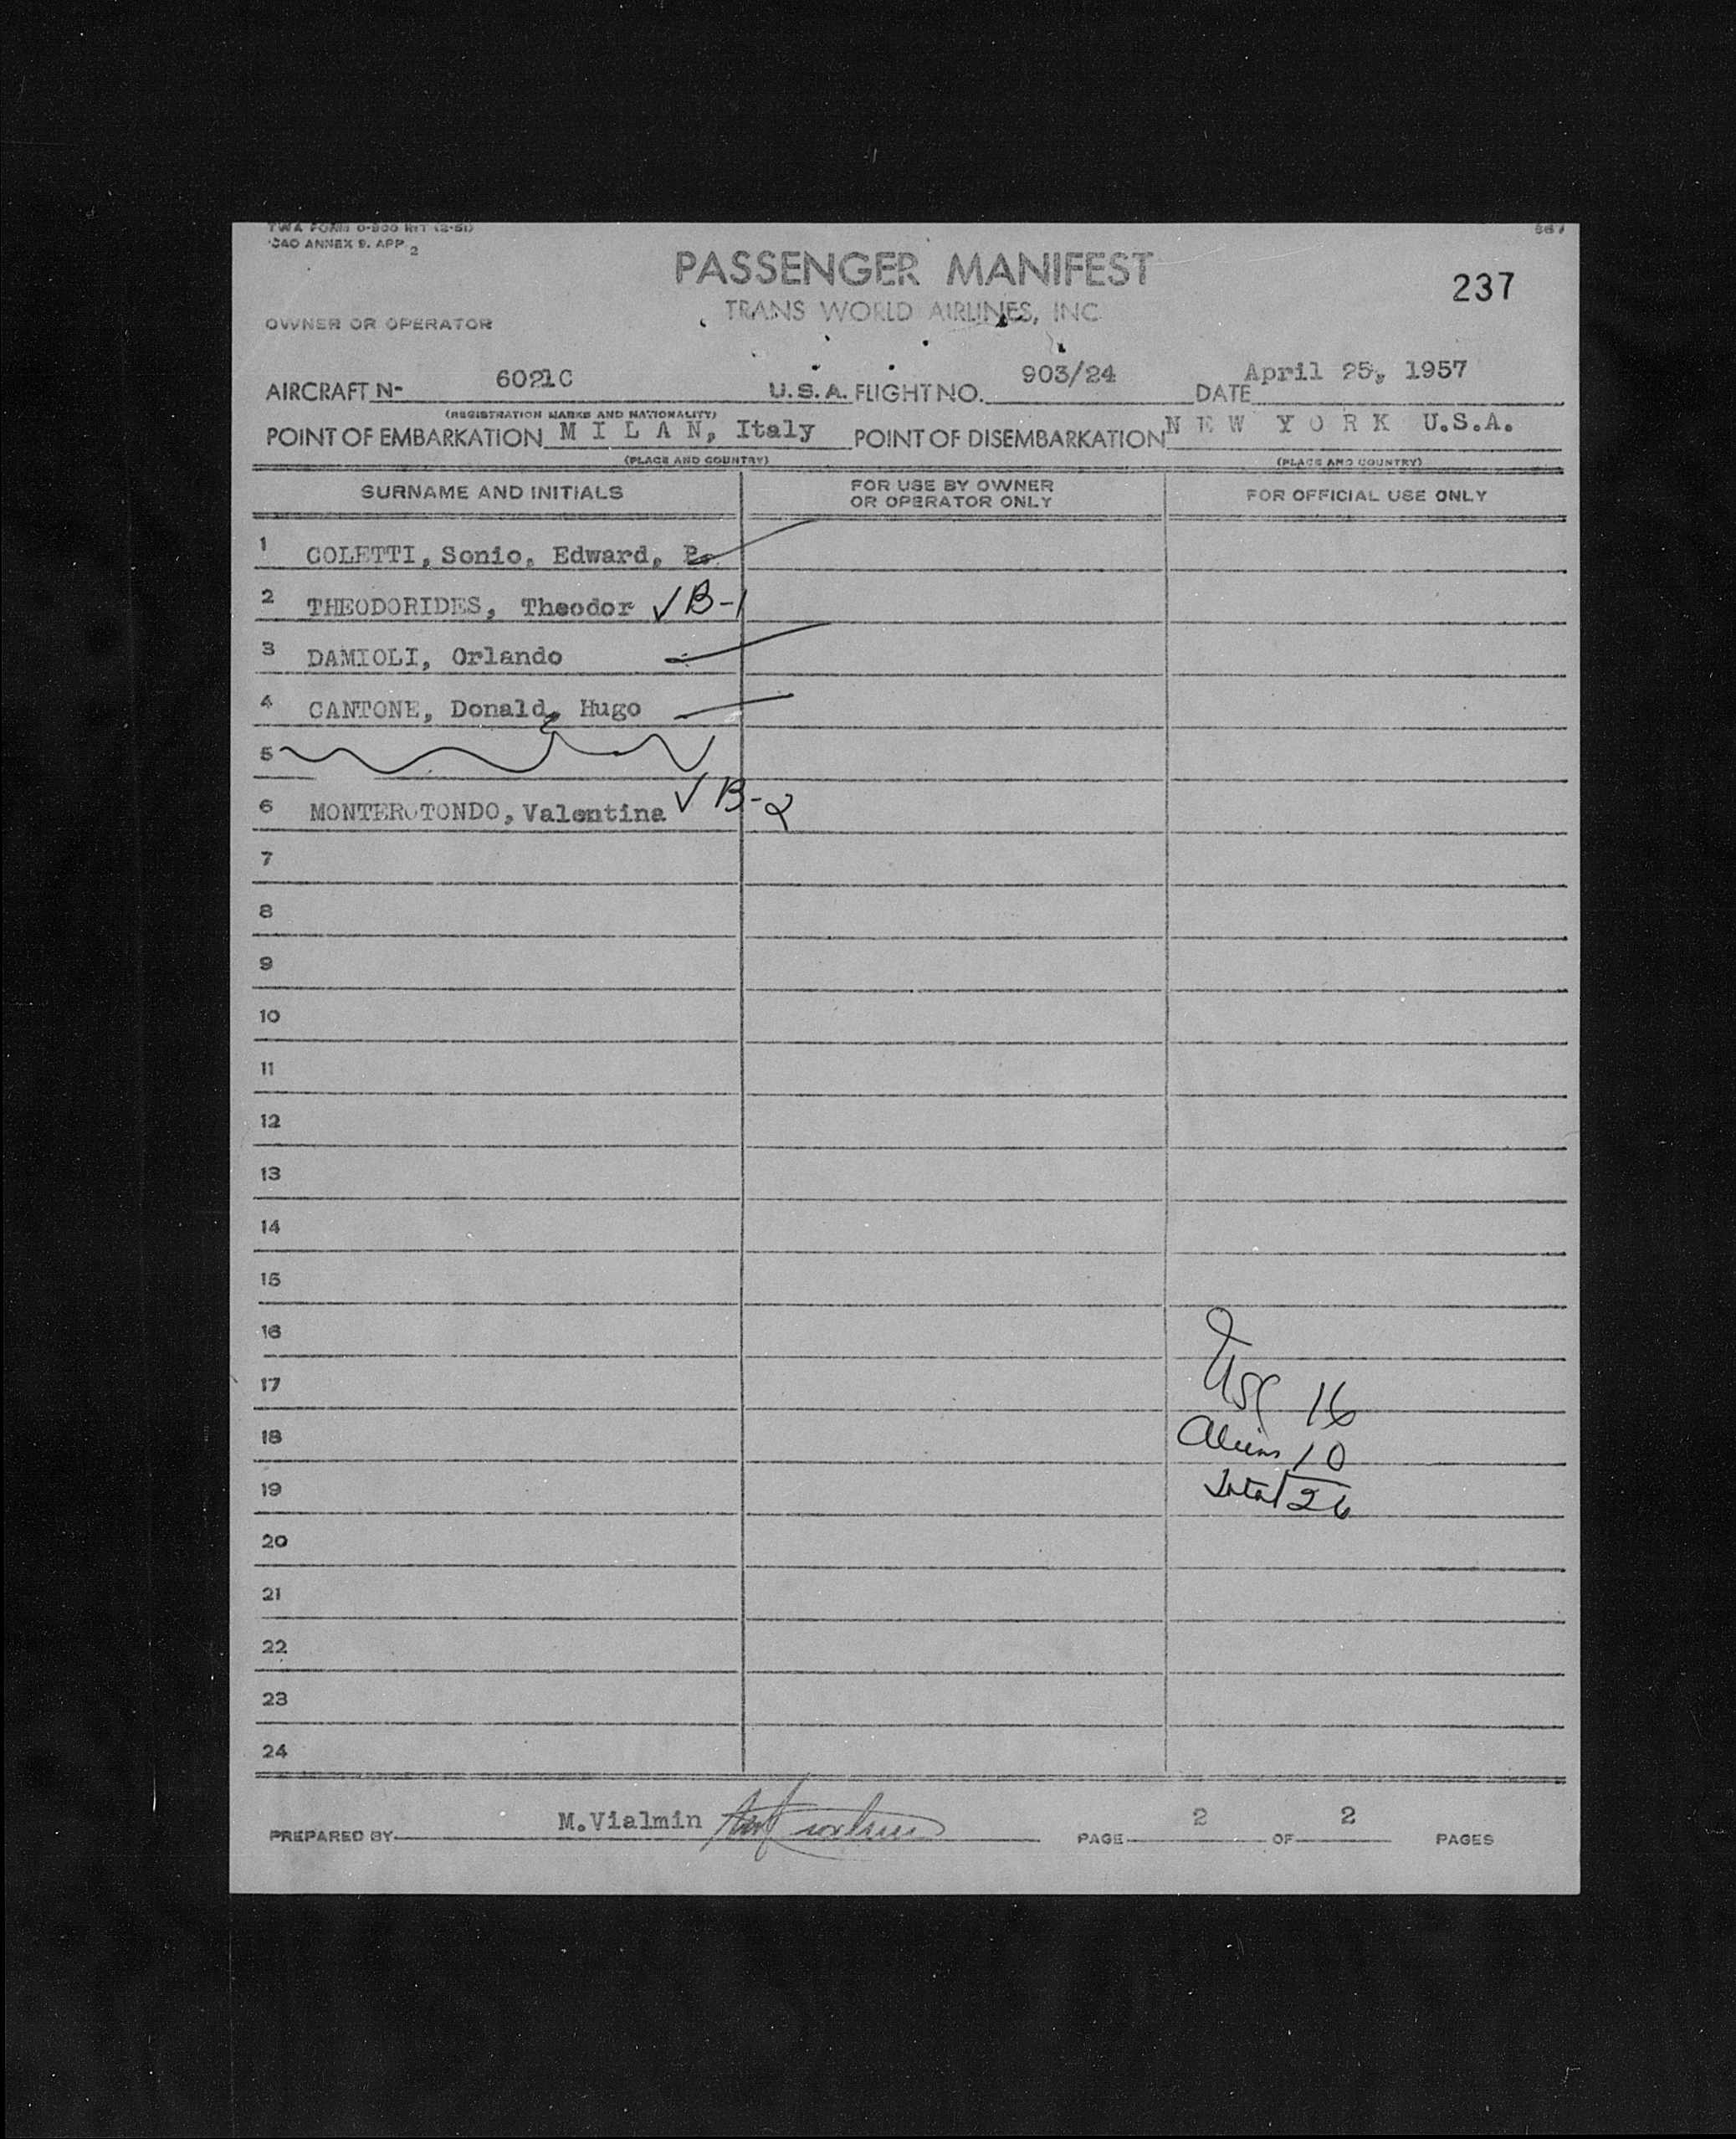 TWA FORM 0-800 INT (2-51)
ICAO ANNEX 9. APP 2
PASSENGER MANIFEST
237
TRANS WORLD AIRLINES, INC
OWNER OR OPERATOR
AIRCRAFT N- 6021C U.S.A. FLIGHT NO. 903/24 DATE April 25, 1957
(REGISTRATION MARKS AND NATIONALITY)
POINT OF EMBARKATION M I L A N, Italy POINT OF DISEMBARKATION N E W Y O R K U.S.A.
(PLACE AND COUNTRY) (PLACE AND COUNTRY)
SURNAME AND INITIALS FOR USE BY OWNER OR OPERATOR ONLY FOR OFFICIAL USE ONLY
1 COLETTI, Sonio, Edward,
2 THEODORIDES, Theodor ✓ B-1
3 DAMIOLI, Orlando
4 CANTONE, Donald, Hugo
5
6 MONTEROTONDO, Valentina ✓ B-2
7
8
9
10
11
12
13
14
15
16
17 USC 16
18 Aliens 10
19 Total 26
20
21
22
23
24
PREPARED BY M.Vialmin PAGE 2 OF 2 PAGES